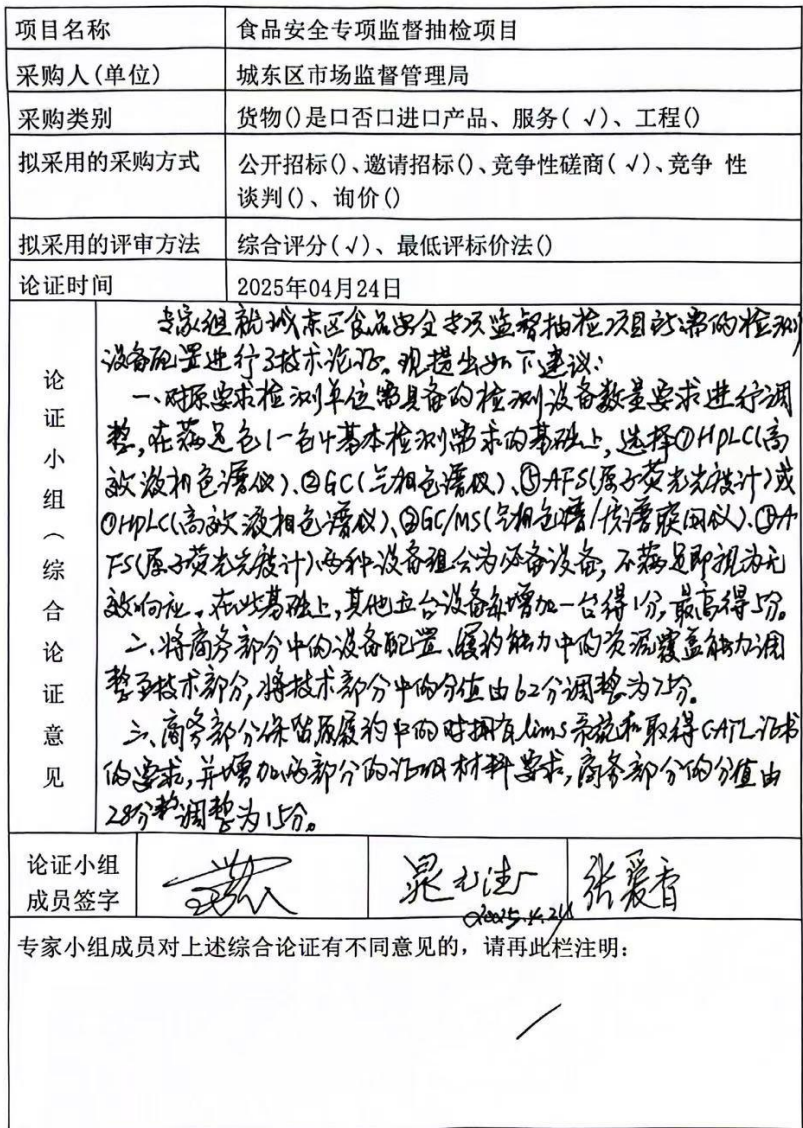 项目名称 食品安全专项监督抽检项目
采购人(单位) 城东区市场监督管理局
采购类别 货物()是口否口进口产品、服务( √)、工程()
拟采用的采购方式 公开招标()、邀请招标()、竞争性磋商( √)、竞争 性
谈判()、询价()
拟采用的评审方法 综合评分(√)、最低评标价法()
论证时间 2025年04月24日
论证小组（综合论证意见
专家组就城东区食品安全专项监督抽检项目所需的检测
设备配置进行了技术论证。现提出如下建议:
一、对原要求检测单位需具备的检测设备数量要求进行调
整,在满足包1一包4基本检测需求的基础上,选择①HPLC(高
效液相色谱仪)、②GC(气相色谱仪)、③AFS(原子荧光光度计)或
①HPLC(高效液相色谱仪)、②GC/MS(气相色谱/质谱联用仪)、③A
FS(原子荧光光度计)两种设备组合为必备设备,不满足即视为无
效响应。在此基础上,其他五台设备每增加一台得1分,最高得5分。
二、将商务部分中的设备配置、履约能力中的资源覆盖能力调
整至技术部分,将技术部分中的分值由62分调整为75分。
三、商务部分保留原履约中的对拥有lims系统和取得CATL证书
的要求,并增加两部分的证明材料要求,商务部分的分值由
28分调整为15分。
论证小组
成员签字
张爱香
2025.4.24
专家小组成员对上述综合论证有不同意见的，请再此栏注明：